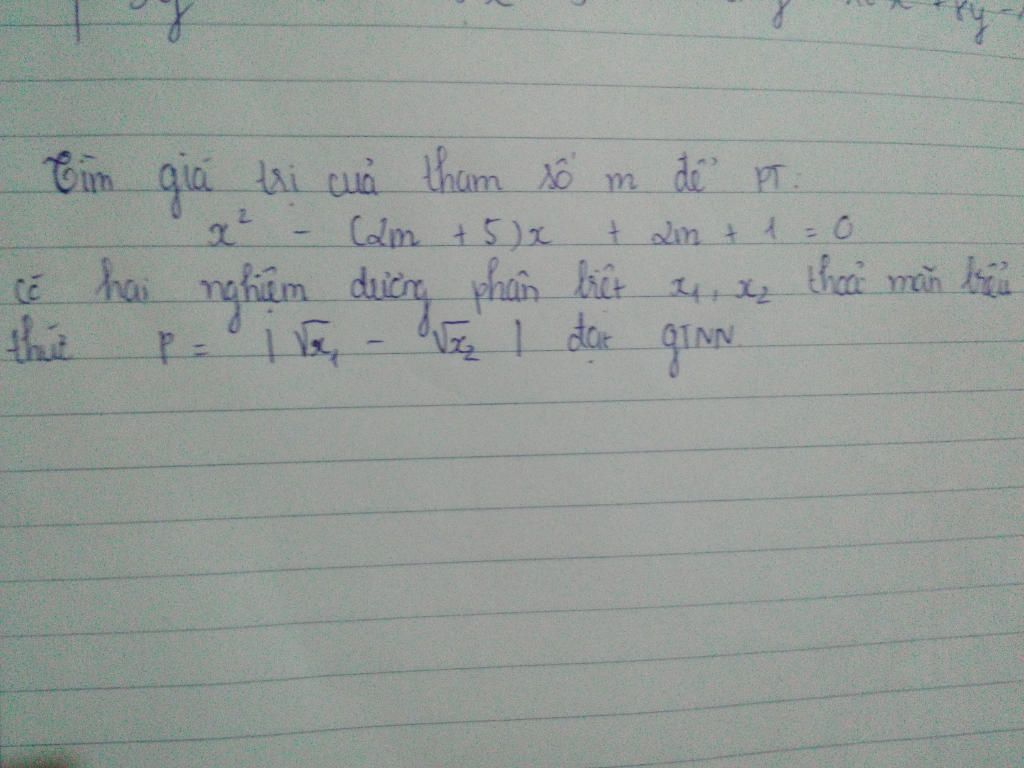 Tìm giá trị của tham số m để PT:
x² - (2m + 5)x + 2m + 1 = 0
có hai nghiệm dương phân biệt x₁, x₂ thoả mãn biểu
thức P = | √x₁ - √x₂ | đạt GTNN